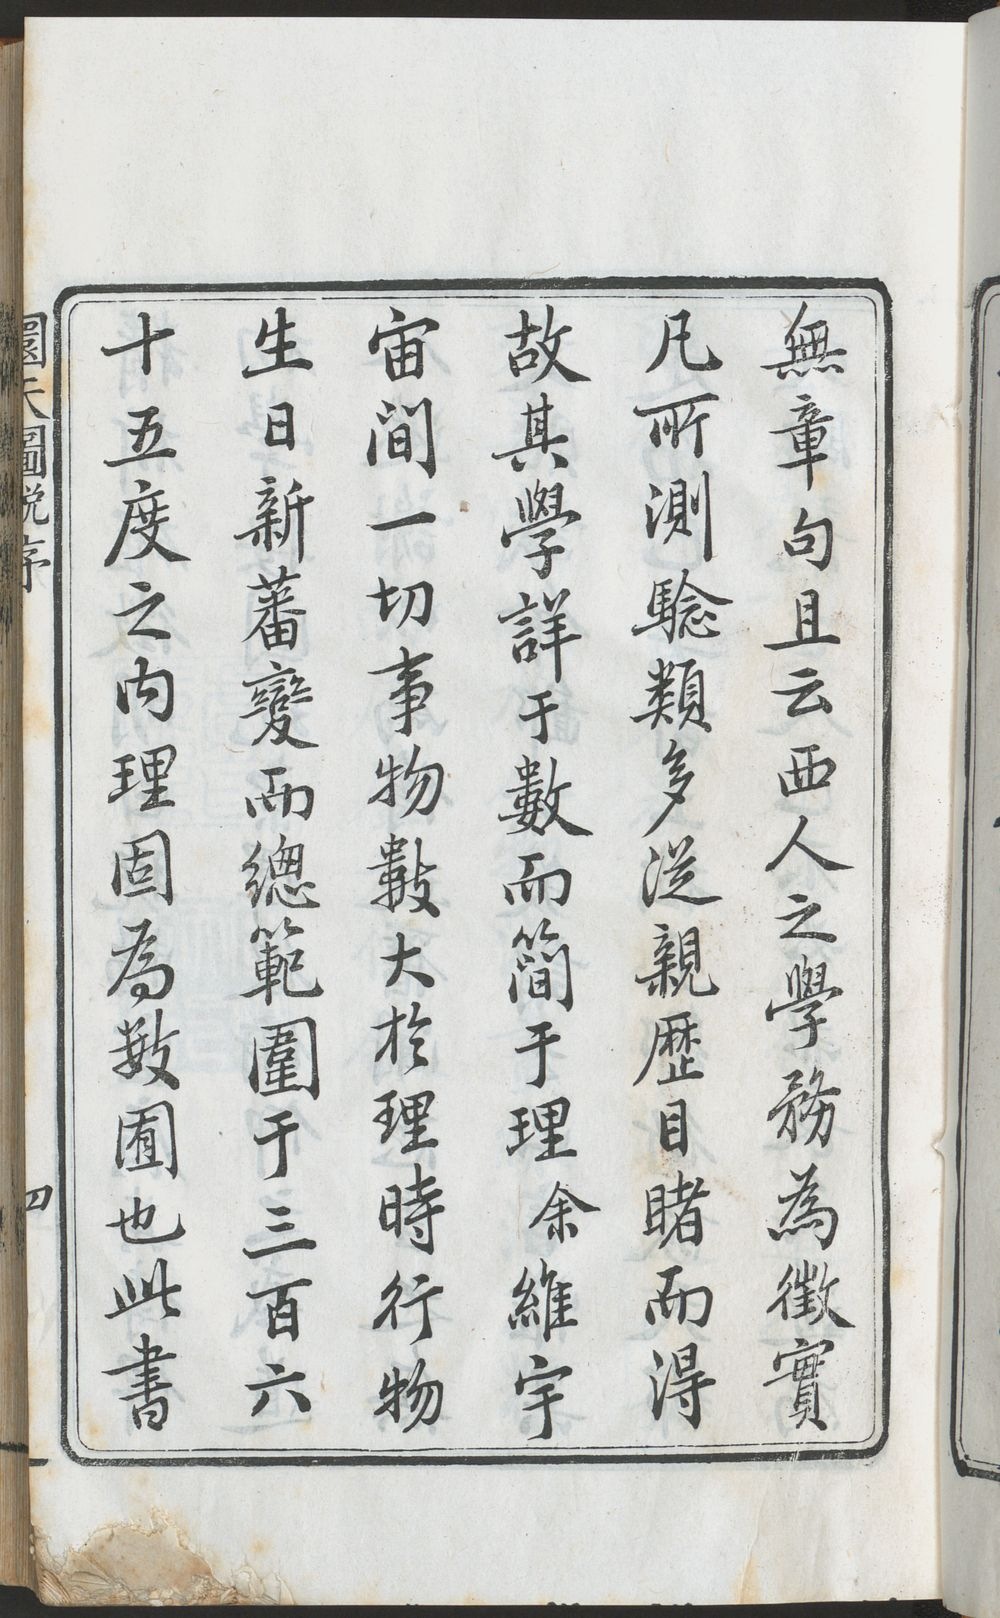 無章句且云西人之學務為徵實
凡所測驗類多從親歷目睹而得
故其學詳于數而簡于理余維宇
宙間一切事物數大於理時行物
生日新蕃變而總範圍于三百六
十五度之内理固為數囿也此書
圜天圖說序
四